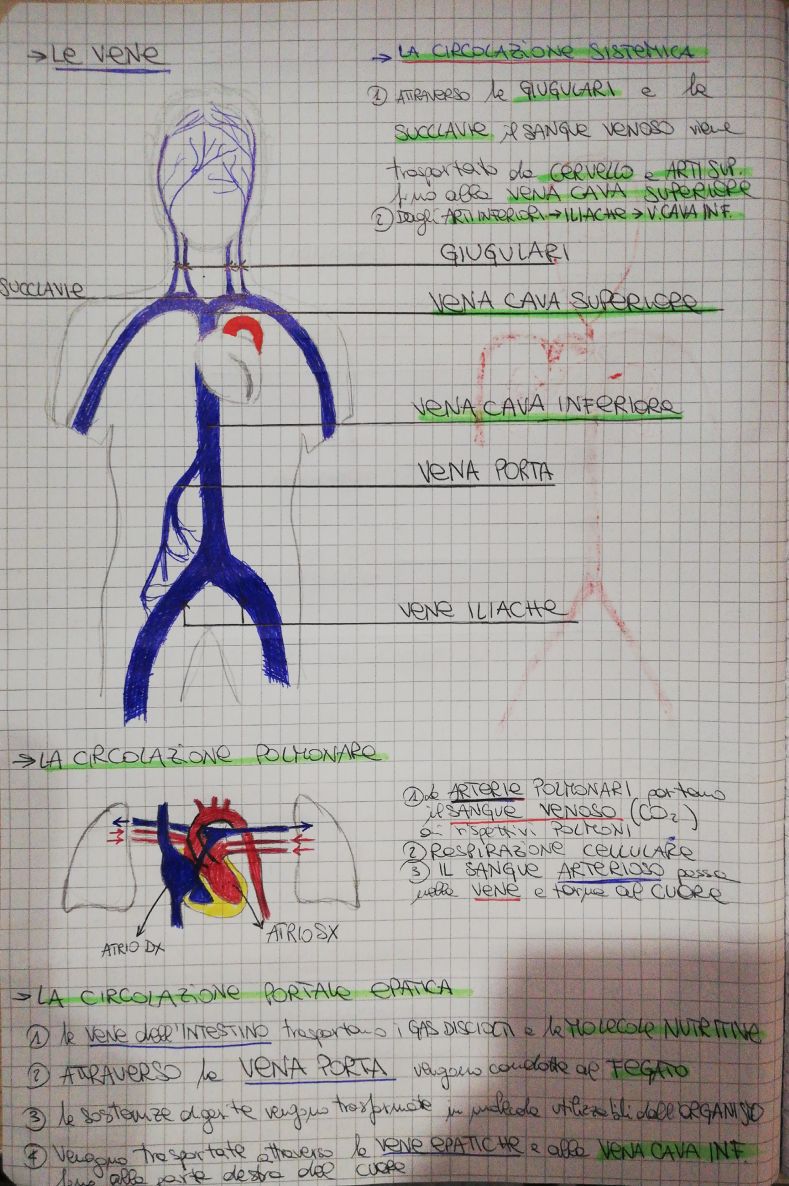 → Le VeNe
→ LA CIRCOLAZIONE SISTEMICA
① ATTRAVERSO le GIUGULARI e le
SUCCLAVIE il SANGUE VENOSO viene
trasportato da CERVELLO e ARTI SUP.
fino alla VENA CAVA SUPERIORE
② Dagli ARTI INFERIORI → ILIACHE → V. CAVA INF.
GIUGULARI
SUCCLAVIE
VENA CAVA SUPERIORE
VENA CAVA INFERIORE
VENA PORTA
VENE ILIACHE
→ LA CIRCOLAZIONE POLMONARE
① Le ARTERIE POLMONARI portano
il SANGUE VENOSO (CO₂)
ai rispettivi POLMONI
② RESPIRAZIONE CELLULARE
③ IL SANGUE ARTERIOSO passa
nelle VENE e torna al CUORE
ATRIO DX
ATRIO SX
→ LA CIRCOLAZIONE PORTALE EPATICA
① le VENE dell'INTESTINO trasportano i GAS DISCIOLTI e le MOLECOLE NUTRITIVE
② ATTRAVERSO la VENA PORTA vengono condotte al FEGATO
③ le sostanze digerite vengono trasformate in molecole utilizzabili dall'ORGANISMO
④ Vengono trasportate attraverso le VENE EPATICHE e alla VENA CAVA INF.
fino alla parte destra del CUORE